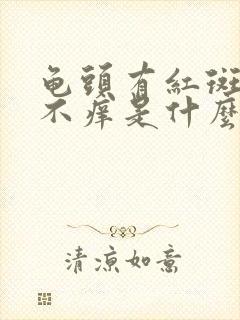 龟頭有紅斑
不癢是什麼
清涼如意